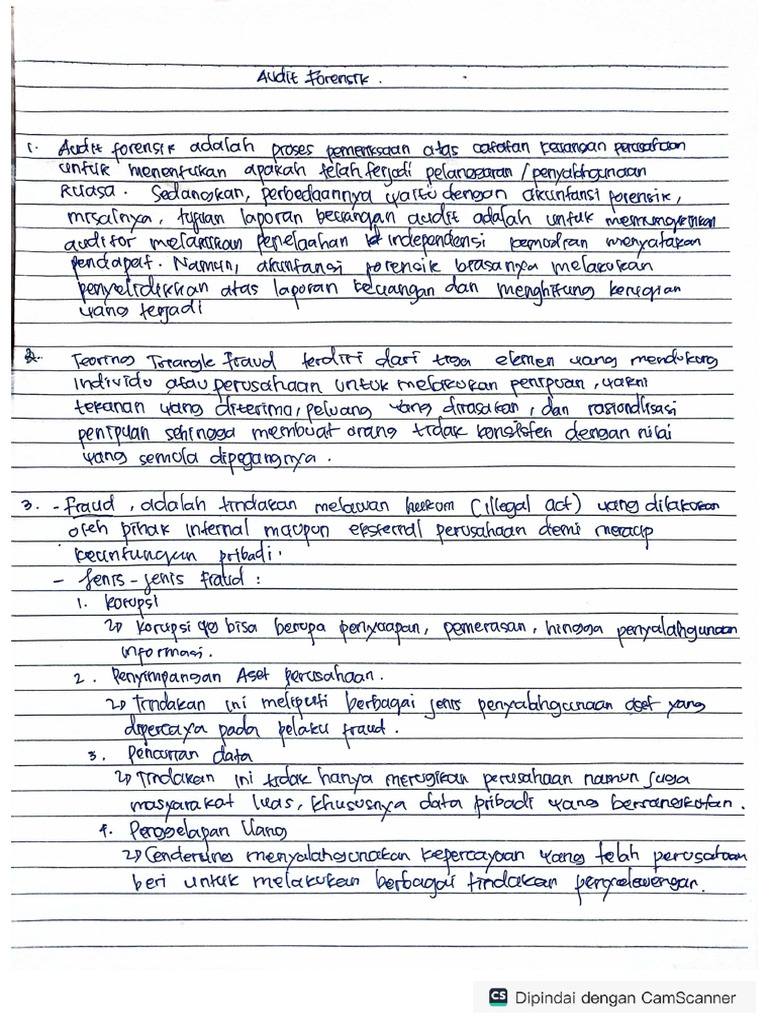 Audit Forensik.
1. Audit forensik adalah proses pemeriksaan atas catatan keuangan perusahaan
untuk menentukan apakah telah terjadi pelanggaran / penyalahgunaan
kuasa. Sedangkan, perbedaannya yaitu dengan akuntansi forensik,
misalnya, tujuan laporan keuangan audit adalah untuk memungkinkan
auditor melakukan penelaahan independensi kemudian menyatakan
pendapat. Namun, akuntansi forensik biasanya melakukan
penyelidikkan atas laporan keuangan dan menghitung kerugian
yang terjadi
2. Teoring Triangle Fraud terdiri dari tiga elemen yang mendukung
individu atau perusahaan untuk melakukan penipuan, yakni
tekanan yang diterima, peluang yang dirasakan, dan rasionalisasi
penipuan sehingga membuat orang tidak konsisten dengan nilai
yang semula dipegangnya.
3. - Fraud, adalah tindakan melawan hukum (illegal act) yang dilakukan
oleh pihak internal maupun eksternal perusahaan demi meraup
keuntungan pribadi.
- Jenis - jenis fraud :
1. Korupsi
Korupsi bisa berupa penyuapan, pemerasan, hingga penyalahgunaan
informasi.
2. Penyimpangan Aset perusahaan.
Tindakan ini meliputi berbagai jenis penyalahgunaan aset yang
dipercaya pada pelaku fraud.
3. Pencurian data
Tindakan ini tidak hanya merugikan perusahaan namun juga
masyarakat luas, khususnya data pribadi yang bersangkutan.
4. Penggelapan Uang
Cenderung menyalahgunakan kepercayaan yang telah perusahaan
beri untuk melakukan berbagai tindakan penyelewengan.
CS Dipindai dengan CamScanner